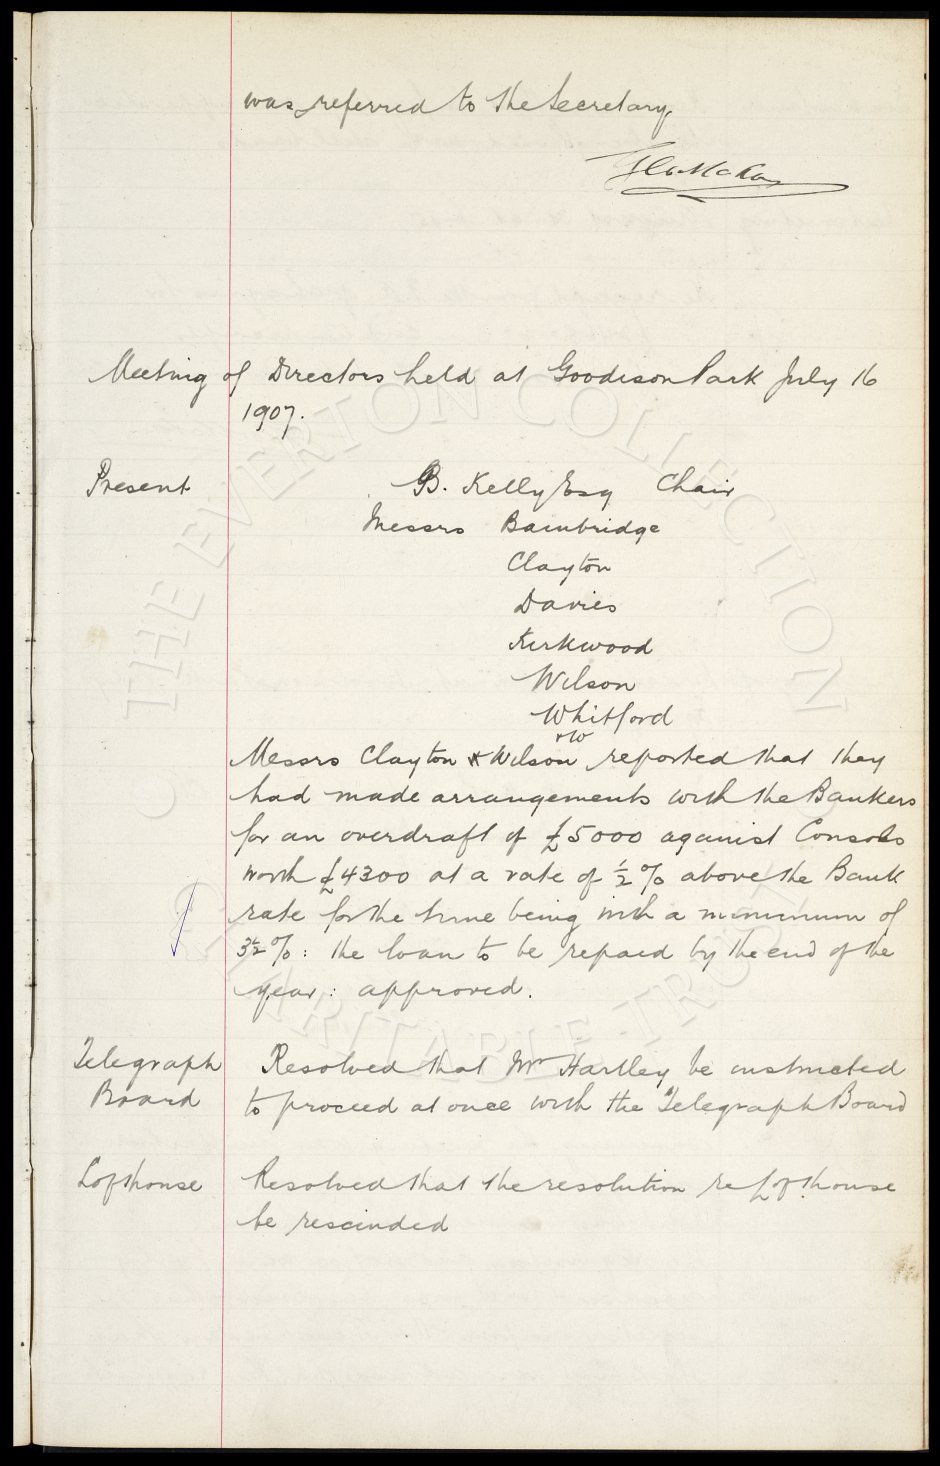 was referred to the Secretary.
Meeting of Directors held at Goodison Park July 16
1907.
Present B. Kelly Esq Chair
Messrs Bainbridge
Clayton
Davies
Kirkwood
Wilson
Whitford
+ W
Messrs Clayton & Wilson reported that they
had made arrangements with the Bankers
for an overdraft of £5000 against Consols
worth £4300 at a rate of ½% above the Bank
rate for the time being with a minimum of
3½%: the loan to be repaid by the end of the
year: approved.
Telegraph Resolved that Mr Hartley be instructed
Board to proceed at once with the Telegraph Board
Lofthouse Resolved that the resolution re Lofthouse
be rescinded
© THE EVERTON COLLECTION
CHARITABLE TRUST